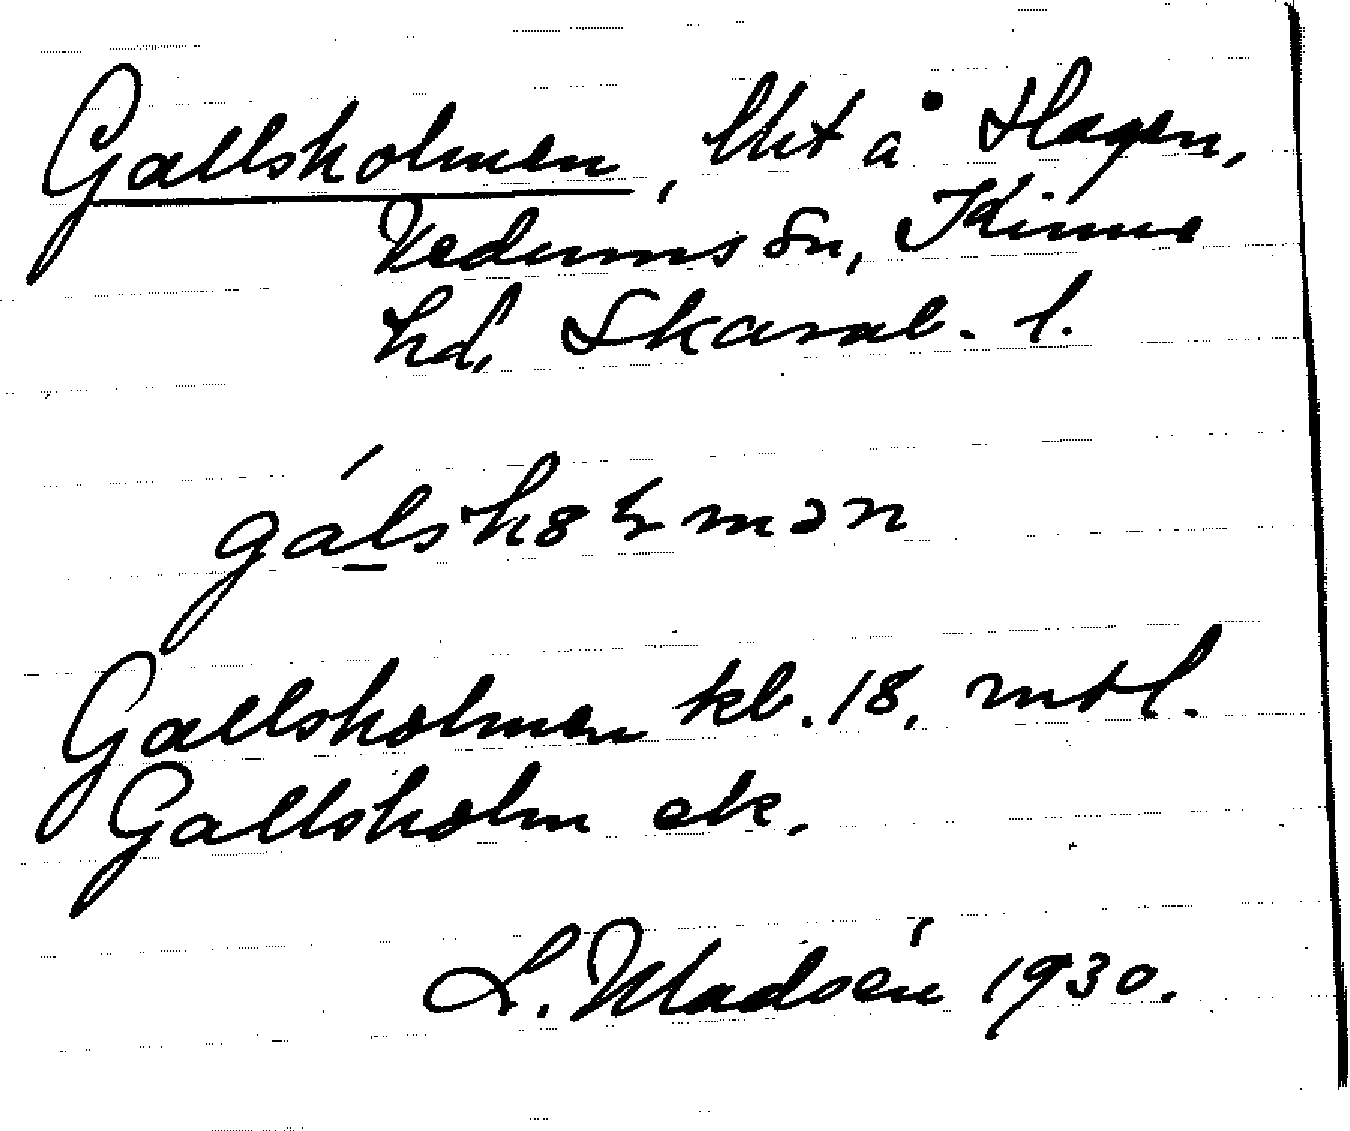 Gallsholmen, lht å Hagen,
Vedums sn, Kinne
hd, Skarab. l.
gálskoɫmən
Gallsholmen kb. 18, mtl.
Gallsholm ek.
L. Madsén 1930.